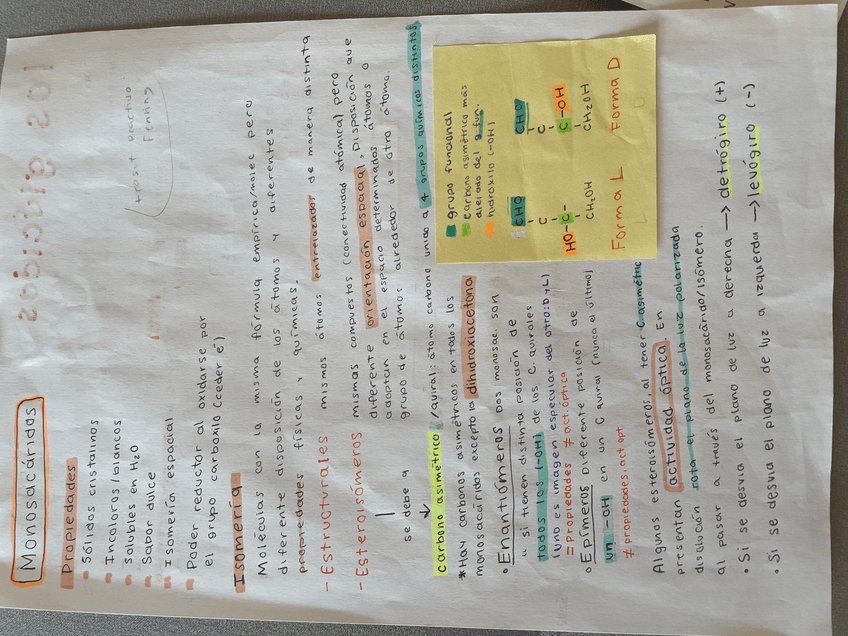 Monosacáridos
+posit reactivo
Fehling
Propiedades
- Sólidos cristalinos
- Incoloros/blancos
- solubles en H₂O
- Sabor dulce
- Isomería espacial
- Poder reductor al oxidarse por
el grupo carboxilo (ceder é)
Isomería
Moléculas con la misma fórmula empírica/molec pero
diferente disposición de los átomos y diferentes
propiedades físicas y químicas.
- Estructurales mismos átomos entrelazados de manera distinta
- Esteroisómeros mismas compuestos (conectividad atómica) pero
diferente orientación espacial. Disposición que
adoptan en el espacio determinados átomos o
grupo de átomos alrededor de otro átomo.
se debe a
carbono asimétrico /quiral: átomo carbono unido a 4 grupos químicos distintos
* Hay carbonos asimétricos en todos los
monosacáridos excepto la dihidroxiacetona
• Enantiómeros Dos monosac. son
" si tienen distinta posición de
todos los (-OH) de los C. quirales
(uno es imagen especular del otro: D y L)
= propiedades ≠ act. óptica
• Epímeros Diferente posición de
un -OH en un C quiral (nunca el último)
≠ propiedades, act opt
grupo funcional
carbono asimétrico más
alejado del g. fun.
hidroxilo (-OH)
CHO CHO
C C
HO-C- C-OH
CH₂OH CH₂OH
Forma L Forma D
Algunos esteroisómeros, al tener C asimétric
presentan actividad óptica. En
disolución rota el plano de la luz polarizada
al pasar a través del monosacárido/isómero.
• Si se desvia el plano de luz a derecha → detrógiro (+)
• Si se desvia el plano de luz a izquierda → levógiro (-)